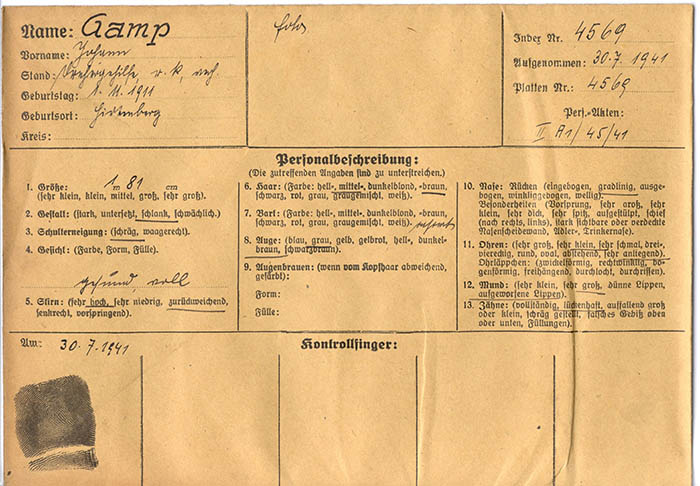 Name: Gamp
Vorname: Johann
Stand: Drehergehilfe, r. k., verh.
Geburtstag: 1. 11. 1911
Geburtsort: Hirtenberg
Kreis:
Index Nr. 4569
Aufgenommen: 30.7. 1941
Platten Nr.: 4569
Pers.-Akten:
II A1/45/41
Personalbeschreibung:
(Die zutreffenden Angaben sind zu unterstreichen.)
1. Größe: 1 m 81 cm
(sehr klein, klein, mittel, groß, sehr groß).
2. Gestalt: (stark, untersetzt, schlank, schwächlich).
3. Schulterneigung: (schräg, waagerecht).
4. Gesicht: (Farbe, Form, Fülle).
gesund, voll
5. Stirn: (sehr hoch, sehr niedrig, zurückweichend,
senkrecht, vorspringend).
6. Haar: (Farbe: hell-, mittel-, dunkelblond, -braun,
schwarz, rot, grau, graugemischt, weiß).
7. Bart: (Farbe: hell-, mittel-, dunkelblond, -braun,
schwarz, rot, grau, graugemischt, weiß) rasiert
8. Auge: (blau, grau, gelb, gelbrot, hell-, dunkel-
braun, schwarzbraun).
9. Augenbrauen: (wenn vom Kopfhaar abweichend,
gefärbt):
Form:
Fülle:
10. Nase: Rücken (eingebogen, gradlinig, ausge-
bogen, winkliggebogen, wellig).
Besonderheiten (Vorsprung, sehr groß, sehr
klein, sehr dick, sehr spitz, aufgestülpt, schief
(nach rechts, links), stark sichtbare oder verdeckte
Nasenscheidewand, Adler-, Trinkernase).
11. Ohren: (sehr groß, sehr klein, sehr schmal, drei-,
viereckig, rund, oval, abstehend, sehr anliegend).
Ohrläppchen: (zwickelförmig, rechtwinklig, bo-
genförmig, freihängend, durchlocht, durchrissen).
12. Mund: (sehr klein, sehr groß, dünne Lippen,
aufgeworfene Lippen).
13. Zähne: (vollständig, lückenhaft, auffallend groß
oder klein, schräg gestellt, falsches Gebiß oben
oder unten, Füllungen).
Am: 30.7.1941
Kontrollfinger: